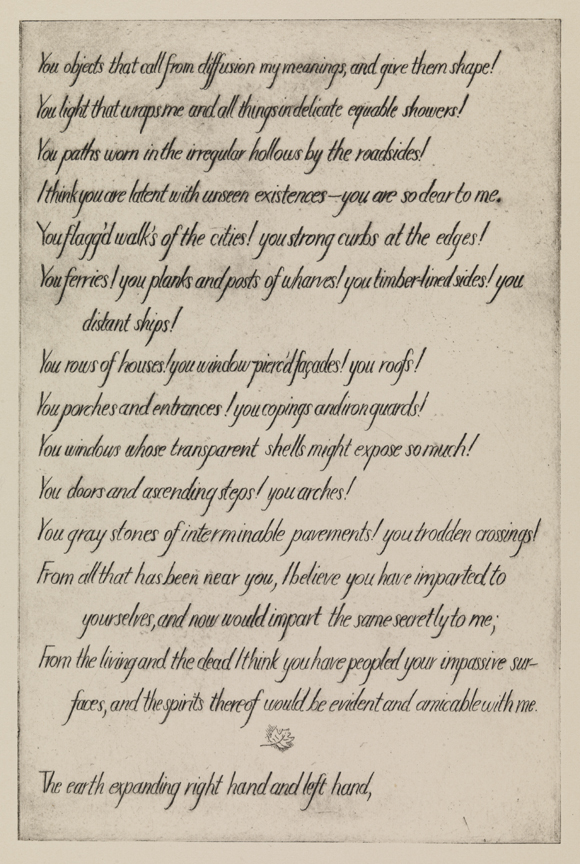 You objects that call from diffusion my meanings, and give them shape!
You light that wraps me and all things in delicate equable showers!
You paths worn in the irregular hollows by the roadsides!
I think you are latent with unseen existences—you are so dear to me.
You flagg'd walks of the cities! you strong curbs at the edges!
You ferries! you planks and posts of wharves! you timber-lined sides! you
distant ships!
You rows of houses! you window-pierc'd façades! you roofs!
You porches and entrances! you copings and iron guards!
You windows whose transparent shells might expose so much!
You doors and ascending steps! you arches!
You gray stones of interminable pavements! you trodden crossings!
From all that has been near you, I believe you have imparted to
yourselves, and now would impart the same secretly to me;
From the living and the dead I think you have peopled your impassive sur-
faces, and the spirits thereof would be evident and amicable with me.
The earth expanding right hand and left hand,